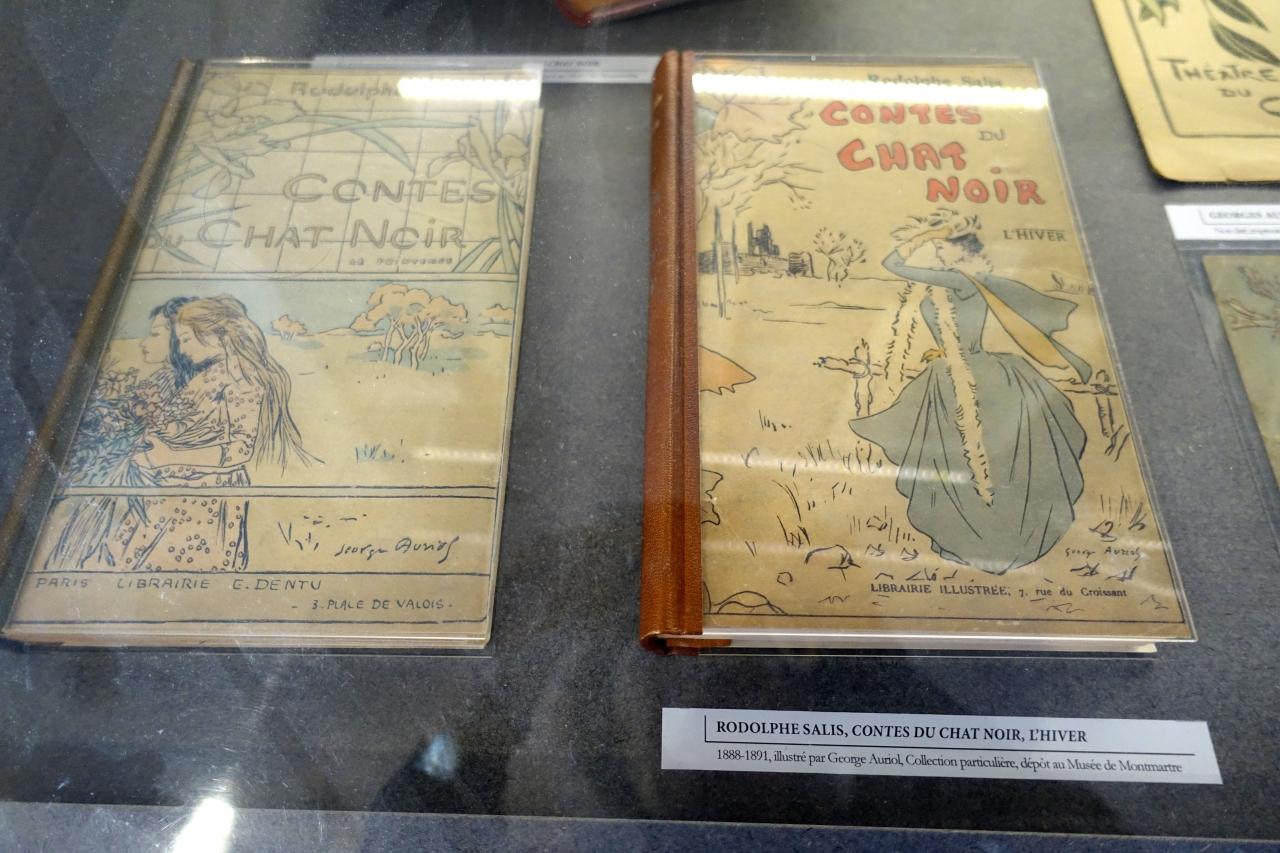 Rodolphe
CONTES
DU CHAT NOIR
LE PRINTEMPS
George Auriol
PARIS LIBRAIRIE E. DENTU
- 3. PLACE DE VALOIS -
Rodolphe Salis
CONTES
DU
CHAT
NOIR
L'HIVER
George Auriol
LIBRAIRIE ILLUSTRÉE, 7, rue du Croissant
RODOLPHE SALIS, CONTES DU CHAT NOIR, L'HIVER
1888-1891, illustré par George Auriol, Collection particulière, dépôt au Musée de Montmartre
THÉATRE
DU
C
GEORGES AU